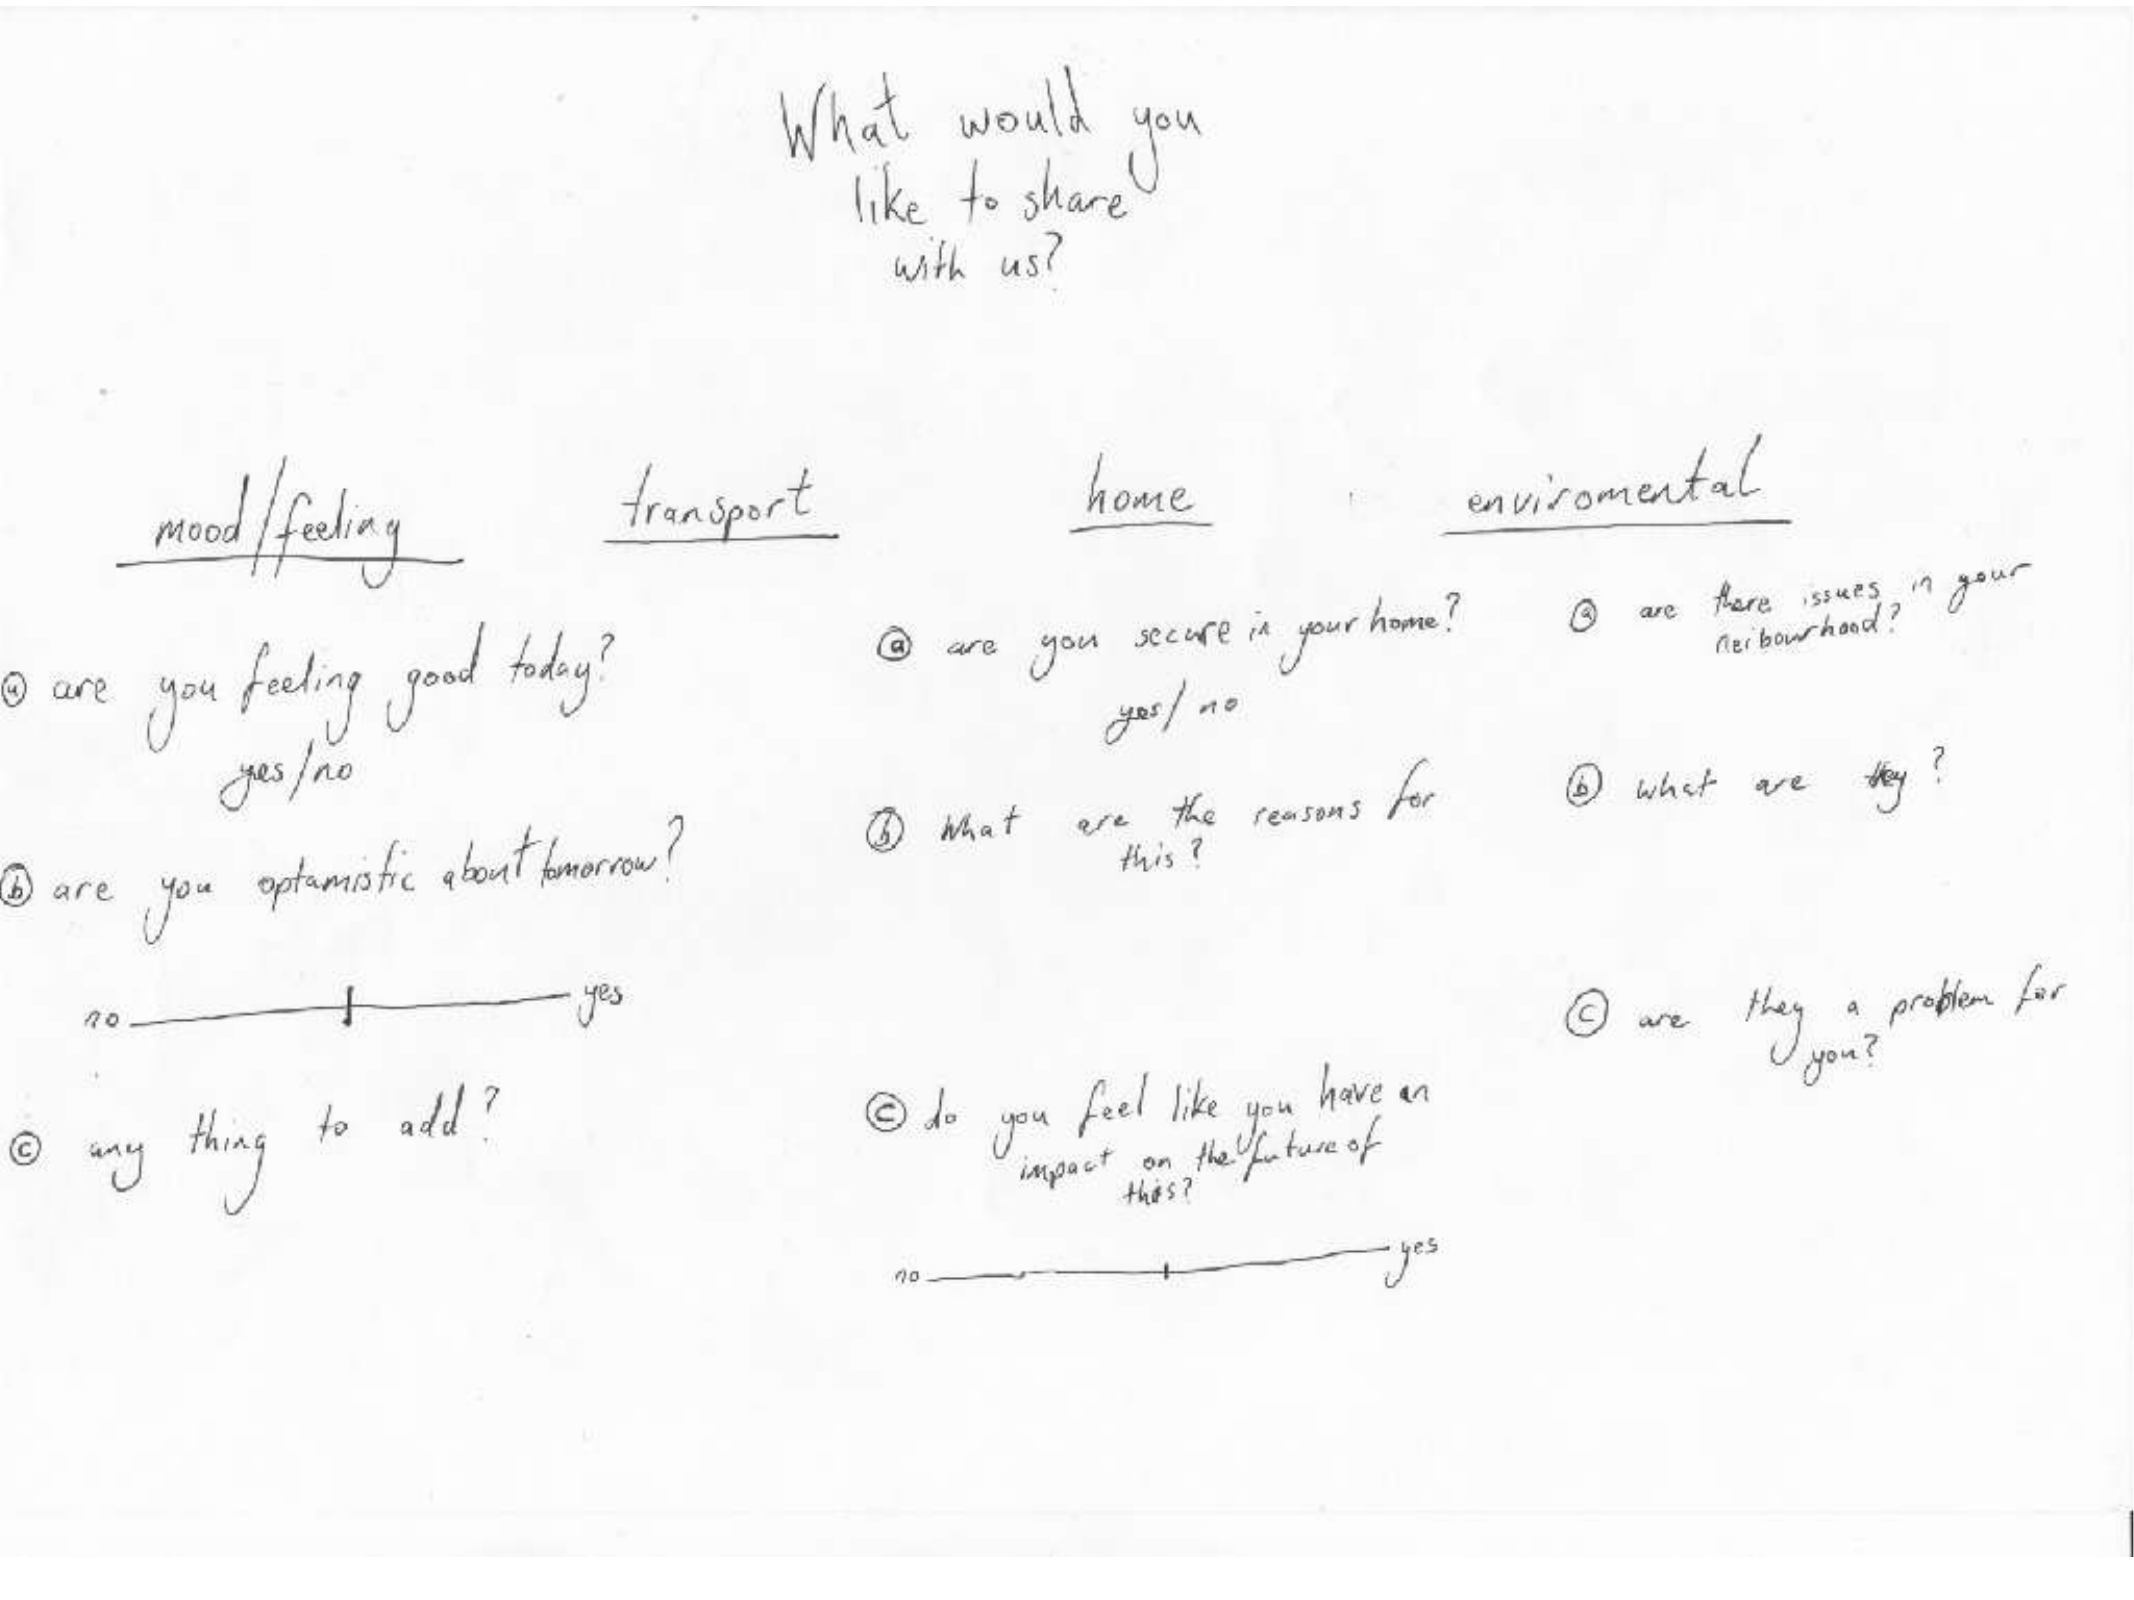 What would you
like to share
with us?
mood/feeling
ⓐ are you feeling good today?
yes/no
ⓑ are you optamistic about tomorrow?
no yes
ⓒ any thing to add?
transport
home
ⓐ are you secure in your home?
yes/no
ⓑ What are the reasons for
this?
ⓒ do you feel like you have an
impact on the future of
this?
no yes
enviromental
ⓐ are there issues in your
neibourhood?
ⓑ what are they?
ⓒ are they a problem for
you?